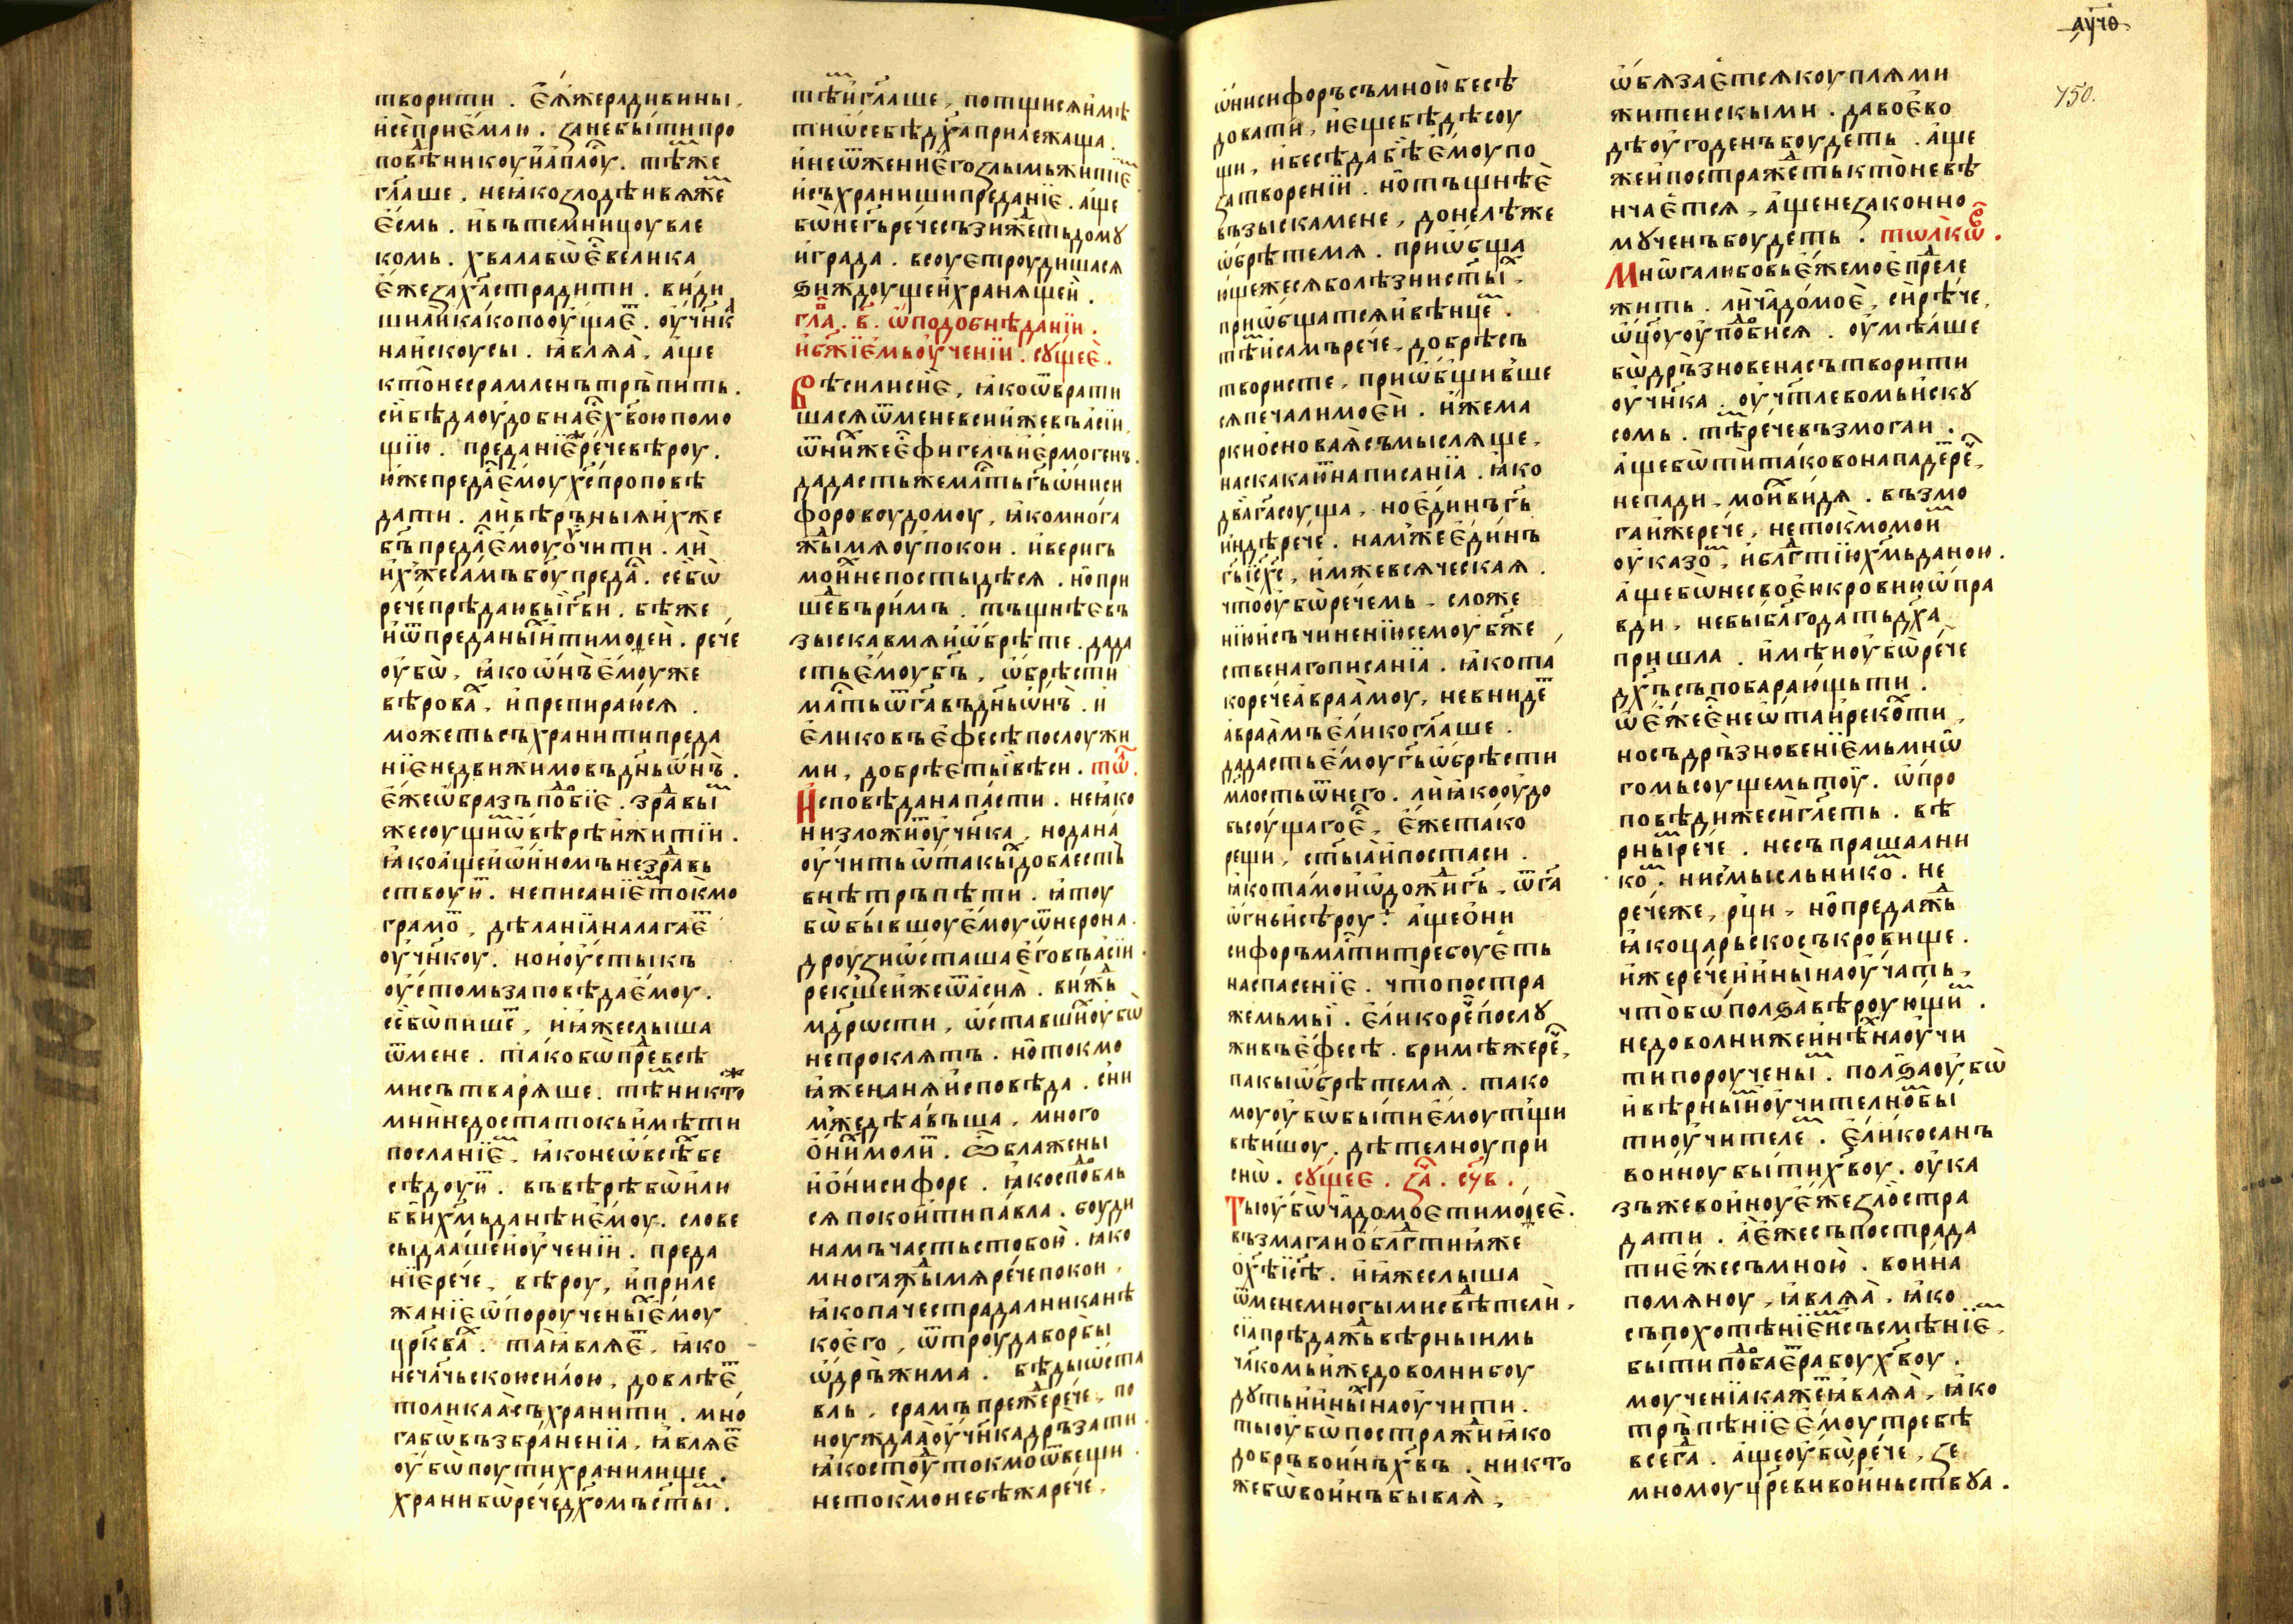 творити . Є҆ѧ҆жерадивины .
и҆сеприє҆млю . ꙁанебытипро
повѣникоуи҆а҆плⷭ҇оу . тѣⷨже
гл҃аше . неꙗ҆коꙁлодѣивѧже
є҆смь . и҆вътемницоувле
комь . хвалабѡ҆є҆ⷭ҇велика
є҆жеꙁаха҇страдати . види
шилика́копооу҆щаєⷮ . оу҆чн҃к
наи҆скоусы . ꙗ҆влѧа҆ . а҆ще
кто̀несрамленътръпить .
сѝвѣдаоу҆добнає҆ⷭ҇хв҃оюпомо
щїю . преданїєречевѣроу .
ю҆жепредаⷭ҇є҆моух҇ѐпроповѣ
дати . лѝвѣръныѧи҆хже
бъ҃предаⷭ҇є҆моуо҆учити . лѝ
и҆хжеса́мъбоупредаⷭ҇ . себѡ̀
речепрѣдаювы́гв҃и . бѣже
и҆ѿпреданыи҆хтимоѳеи . рече
оу҆бѡ̀ . ꙗ҆коѡ҆нъє҆моуже
вѣроваⷯ . и҆препираюсѧ .
можетьсъхранитипреда
нїєнедвижимовъдн҃ьѡ҆нъ .
є҆жеѡ҆бразъпоⷣбїє . зраⷣвы
жесоущиⷯѡ҆вѣрѣи҆житїи .
ꙗ҆коа҆щеи҆ѡ҆и҆номънезраⷣвь
ствоуиⷨ . неписанїєⷨток̀мо
грамоⷮ . дѣланїа҆налагаєⷮ
оу҆чн҃коу . ноиоу҆стыкъ
оу҆стомьзаповѣдає҆моу .
себѡ̀пишеⷮ . и҆ꙗ҆жеслыша
ѿмене . та́кобѡ̀преⷣвсѣ
мисътварѧше . тѣⷨникто
мни́недостатокьи҆мѣти
посланїєⷨ . ꙗ҆конеѡ҆всѣⷯбе
сѣдоуиⷨ . въвѣрѣбѡ̀или
бв҃и҆хмьданѣие҆моу . слове
сыдаа҆шеи҆оу҆ченїи . преда
нїєрече . вѣроу . и҆приле
жанїєѡ҆пороученыⷯє҆моу
цр҃кваⷯ . таꙗ҆влѧєⷮ . ꙗ҆ко
нечлч҃ьскоюси́лою . довлѣєⷮ
толика́а҆съхранити . мно
габѡ̀възбраненїа . ꙗ҆влѧєⷮ
оу҆бѡ̀поутихранилище .
хранибѡ̀речедх҃омъст҃ы .
тѣⷨи҆гл҃аше . потщисѧи҆мѣ
тиѡ҆себѣдх҃априлежаща .
и҆неѿжение҆гоꙁлымьжитиєⷨ
и҆съхранишипреданїє . а҆ще
бѡ̀негь҃речесъзижетьдомꙋ
и҆града . всоуєтроудишасѧ
ѕиждоущеи҆хранѧщеи .
гл҃а . в҃ . ѡ҆подобнѣданїи .
и҆бж҃їємьоу҆ченїи . сꙋщеє .
Вѣсилисиє . ꙗ҆коѿврати
шасѧѿменевсии҆жевъа҆сїи .
ѿниⷯжеє҆ⷭ҇фигелъи҆є҆рмогень .
дадастьжемлⷭ҇тьгь҃ѡ҆ниси
форовоудомоу . ꙗ҆комнога
жⷣымѧоу҆покои . и҆веригь
моиⷯнепостыдѣсѧ . но̀при
шеⷣвъримъ . тъщнѣєвъ
зыскавмѧи҆ѡ҆брѣте . дада
стьє҆моубъ҃ . ѡ҆брѣсти
млⷭ҇тьѿга҃въдн҃ьѡ҆нъ . и
є҆ликовъє҆фесѣпослоужи
ми . добрѣє҆тыи҆вѣси . тѡⷧ .
Исповѣданапасти . неꙗ҆ко
низложиⷮоу҆чн҃ка . нодана́
оу҆читьѡ҆такыⷯдоблесть
внѣтръпѣти . ꙗ҆тоу
бѡ̀бывшоує҆моуѿнерона .
дроузиѡ҆сташае҆говъа҆сїи .
рек̀шеи҆жеѿа҆сиѧ . виж̀ь
мдⷣрѡсти . ѡ҆ставшиⷯоу҆бѡ̀
непроклѧтъ . но̀токмо
ꙗ҆женанѧи҆сповѣда . сии
мж҃едѣа҆въша . много
о҆ни҆моли́ . Ѽблажены
и҆о҆нисифоре . ꙗ҆коспоⷣбль
сѧпокоитипавла . боуди
намъчастьстобою . ꙗ҆ко
многажⷣымѧречепокои .
ꙗ҆копачестрадалниканѣ
кое҆го . ѿтроудаборбы
ѡ҆дръжима . вѣдыѡ҆ста
вль . срамъпрежⷣерече . по
ноуждаа҆оу҆чн҃кадръзати .
ꙗ҆костⷣоутокмоѿвещи .
неток̀монебѣжарече .
ѡ҆нисифоръсъмноюбесѣ
довати . и҆є҆щевѣдѣсоу
щи . и҆бесѣдавѣє҆моупо
ꙁатворенїи . но̀тъщнѣє
възыскамене . донелѣже
ѡ҆брѣтемѧ . приѡ҆бща
ющежесѧболѣзниⷯстыⷯ .
приѡ҆бщатсѧи҆вѣнцеⷨ .
тѣⷨи҆самърече . добрѣсъ
твористе . приѡ҆бщивше
сѧпечалимоє҆и . и҆жема
ркио҆новаа҆съмыслѧще .
наскакаю҆тнаписанїа . ꙗ҆ко
два̀га҃соуща . ноє҆динъгь҃
и҆ндѣрече . нам̀жеє҆динъ
гь҃і҆с҃х҃с . и҆мжевсѧческаѧ .
что̀оу҆бѡ̀речемь . сложе
нїюи҆съчиненїюсемоубж҃е
ственагописанїа . ꙗ҆кота
коречеа҆враамоу . невнидеⷮ
а҆враамъє҆ликогл҃аше .
дадастьє҆моугь҃ѡ҆брѣсти
млⷭ҇тьѿнего . лѝꙗ҆кооу҆до
бьсоущагоє҆ⷭ҇ . є҆жетако
рещи . ст҃ыꙗ҆и҆постаси .
ꙗ҆котамои҆ѡ҆дожⷣи́гь҃ . ѿга҃
ѡ҆гньи҆сѣроу : а҆щео҆ни
сифоръмлⷭ҇титребоує҆ть
наспасенїє . что̀постра
жемьмы . є҆ликореⷱпослꙋ
живъє҆фесѣ . вримѣжереⷱ .
пакыѡ҆брѣтемѧ . тако
моуоу҆бѡ̀бытие҆моутщи
вѣишоу . дѣтелноупри
снѡ̀ . сꙋщеє . ꙁаⷱ . сч҃в .
Тыоу҆бѡ̀чадомоєтимоѳеє .
възмагаио҆блгⷣтиꙗ҆же
о҆х҃ѣі҆с҃ѣ . и҆ꙗ҆жеслыша
ѿменемногымисвⷣѣтели .
сїапрѣдажⷣьвѣрныимь
члк҃омьи҆жедоволнибоу
дꙋтьи҆и҆ныⷯнаоу҆чити .
тыоу҆бѡ̀постражⷣиꙗ҆ко
добръвоинъхв҃ъ . никто
жебѡ̀воинъбываѧ .
ѡ҆бѧзаетсѧкоуплѧми
житейскыми . давоє҆во
дѣоу҆годенъбоудеть . а҆ще
жеи҆постражⷣетькто̀невѣ
нчаєтсѧ . а҆щенеꙁаконно
мꙋченъбоудеть . тѡлкѡⷡ .
Мнѡгалюбовьє҆жемоє҆преⷣле
жить . лѝчадомоє҆ . си́рѣче .
ѿц҃оуоу҆поⷣбисѧ . оу҆мѣѧше
бѡ̀дръзновенасътворити
оу҆чн҃ка . оу҆чтⷧлевомьи҆скꙋ
сомь . тѣⷨречевъзмогаи .
а҆щебѡ̀титаковонападереⷱ .
непади . моиⷯвидѧ . възмо
гаи҆жерече . нетокмомои
оу҆казоⷨ . и҆блгⷣтїюхмь҃даною .
а҆щебѡ̀несвоє҆юкровиюѡ҆пра
вди . небыблгодатьдх҃а
пришла . и҆мѣиоу҆бѡ̀рече
дх҃ъсъпобарающьти .
ѡ҆є҆жеє҆ⷭ҇неѡ҆таи҆рекоⷯти .
носъдръзновенїємьмнѡ
гомьсоущемьтоу . ѡ҆про
повѣдижесигл҃еть . вѣ
рныⷨрече . несъпрашални
коⷨ . ниемысльникоⷨ . не
речеже . рци . но̀предажⷣь
ꙗ҆коцарьскоесъкровище .
и҆жеречеи҆и҆ныⷯнаоу҆чать .
что̀бѡ̀полѕавѣроующиⷨ .
недоволнижеи҆инѣⷯнаоу҆чи
типороучены . полѕаоу҆бѡ̀
и҆вѣрныⷨи҆оу҆чителноⷨбы
тиоу҆чителеⷨ . є҆ликосанъ
воиноубытихв҃оу . оу҆ка
зъжевоиноує҆жеꙁлостра
дати . а҆є҆жесъпострада
тиє҆жесъмною . воина
помѧноу . ꙗ҆влѧа҆ . ꙗ҆ко
съпохотѣнїєⷨи҆съсмѣнїєⷨ .
бытипоⷣбає҆ⷮрабоухв҃оу .
моученїакажеⷮꙗ҆влѧа҆ . ꙗ҆ко
тръпѣнїєє҆моутребѣ
всегⷣа . а҆щеоу҆бѡ̀рече . ꙁе
мномоуцр҃евивоиньствꙋа .
аѱчѳ
750.